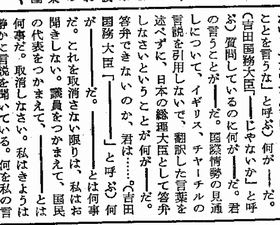 ことを言うな」と呼ぶ)何が――だ。
(吉田国務大臣「――じやないか」と呼
ぶ)質問しているのに何が――だ。君
の言うことが――だ。国際情勢の見通
しについて、イギリス、チャーチルの
言説を引用しないで、翻訳した言葉を
述べずに、日本の総理大臣として答弁
しなさいということが何が――だ。
答弁できないのか、君は……(吉田
国務大臣「――――」と呼ぶ)何
が――――だ。――――とは何事
だ。これを取消さない限りは、私はお
聞きしない。議員をつかまえて、国民
の代表をつかまえて、――――とは
何事だ。取消しなさい。私はきようは
静かに言説を聞いている。何を私の言